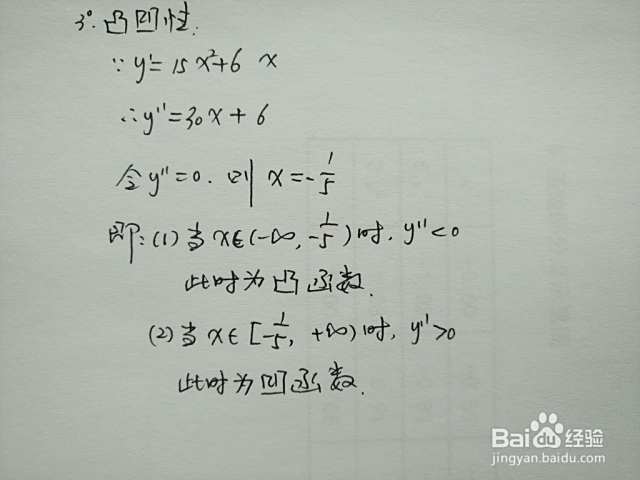 3°. 凸凹性.
∵ y'= 15x²+6 x
∴ y''=30x+6
令y''=0. 则 x=-1/5
即: (1) 当 x∈(-∞, -1/5) 时. y''<0
此时为凸函数.
(2) 当 x∈[-1/5, +∞) 时, y''>0
此时为凹函数.
Baidu经验
jingyan.baidu.com